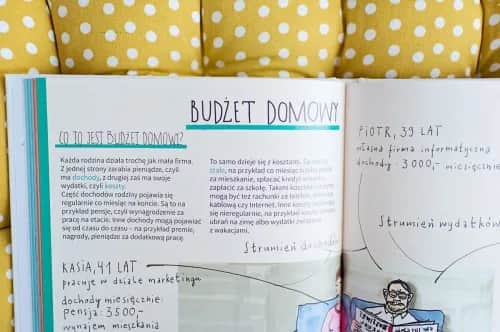 BUDŻET DOMOWY
CO TO JEST BUDŻET DOMOWY?
Każda rodzina działa trochę jak mała firma.
Z jednej strony zarabia pieniądze, czyli
ma dochody, z drugiej zaś ma swoje
wydatki, czyli koszty.
Część dochodów rodziny pojawia się
regularnie co miesiąc na koncie. Są to na
przykład pensje, czyli wynagrodzenie za
pracę na etacie. Inne dochody mogą pojawiać
się od czasu do czasu – na przykład premie,
nagrody, pieniądze za dodatkową pracę.
To samo dzieje się z kosztami. Są
stałe, na przykład co miesiąc
za mieszkanie, spłacać kredyt
zapłacić za szkołę. Takimi
mogą być też rachunki za telefon,
kablową czy Internet. Inne koszty
się nieregularnie, na przykład
ubrań na zimę albo wydatki
z wakacjami.
Strumień dochodów
KASIA, 41 LAT
pracuje w dziale marketingu
dochody miesięczne:
pensja: 3500,-
wynajem mieszkania
PIOTR, 39 LAT
własna firma informatyczna
dochody: 3000,- miesięcznie
Strumień wydatków